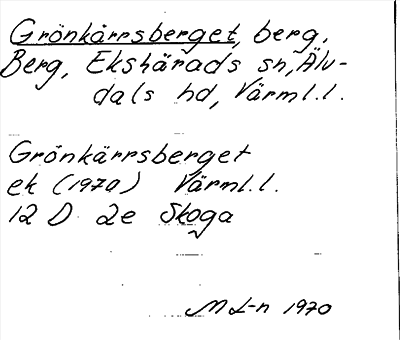 Grönkärrsberget, berg,
Berg, Ekshärads sn, Älv-
dals hd, Värml.l.
Grönkärrsberget
ek (1970) Värml.l.
12 D 2e Skoga
M L-n 1970